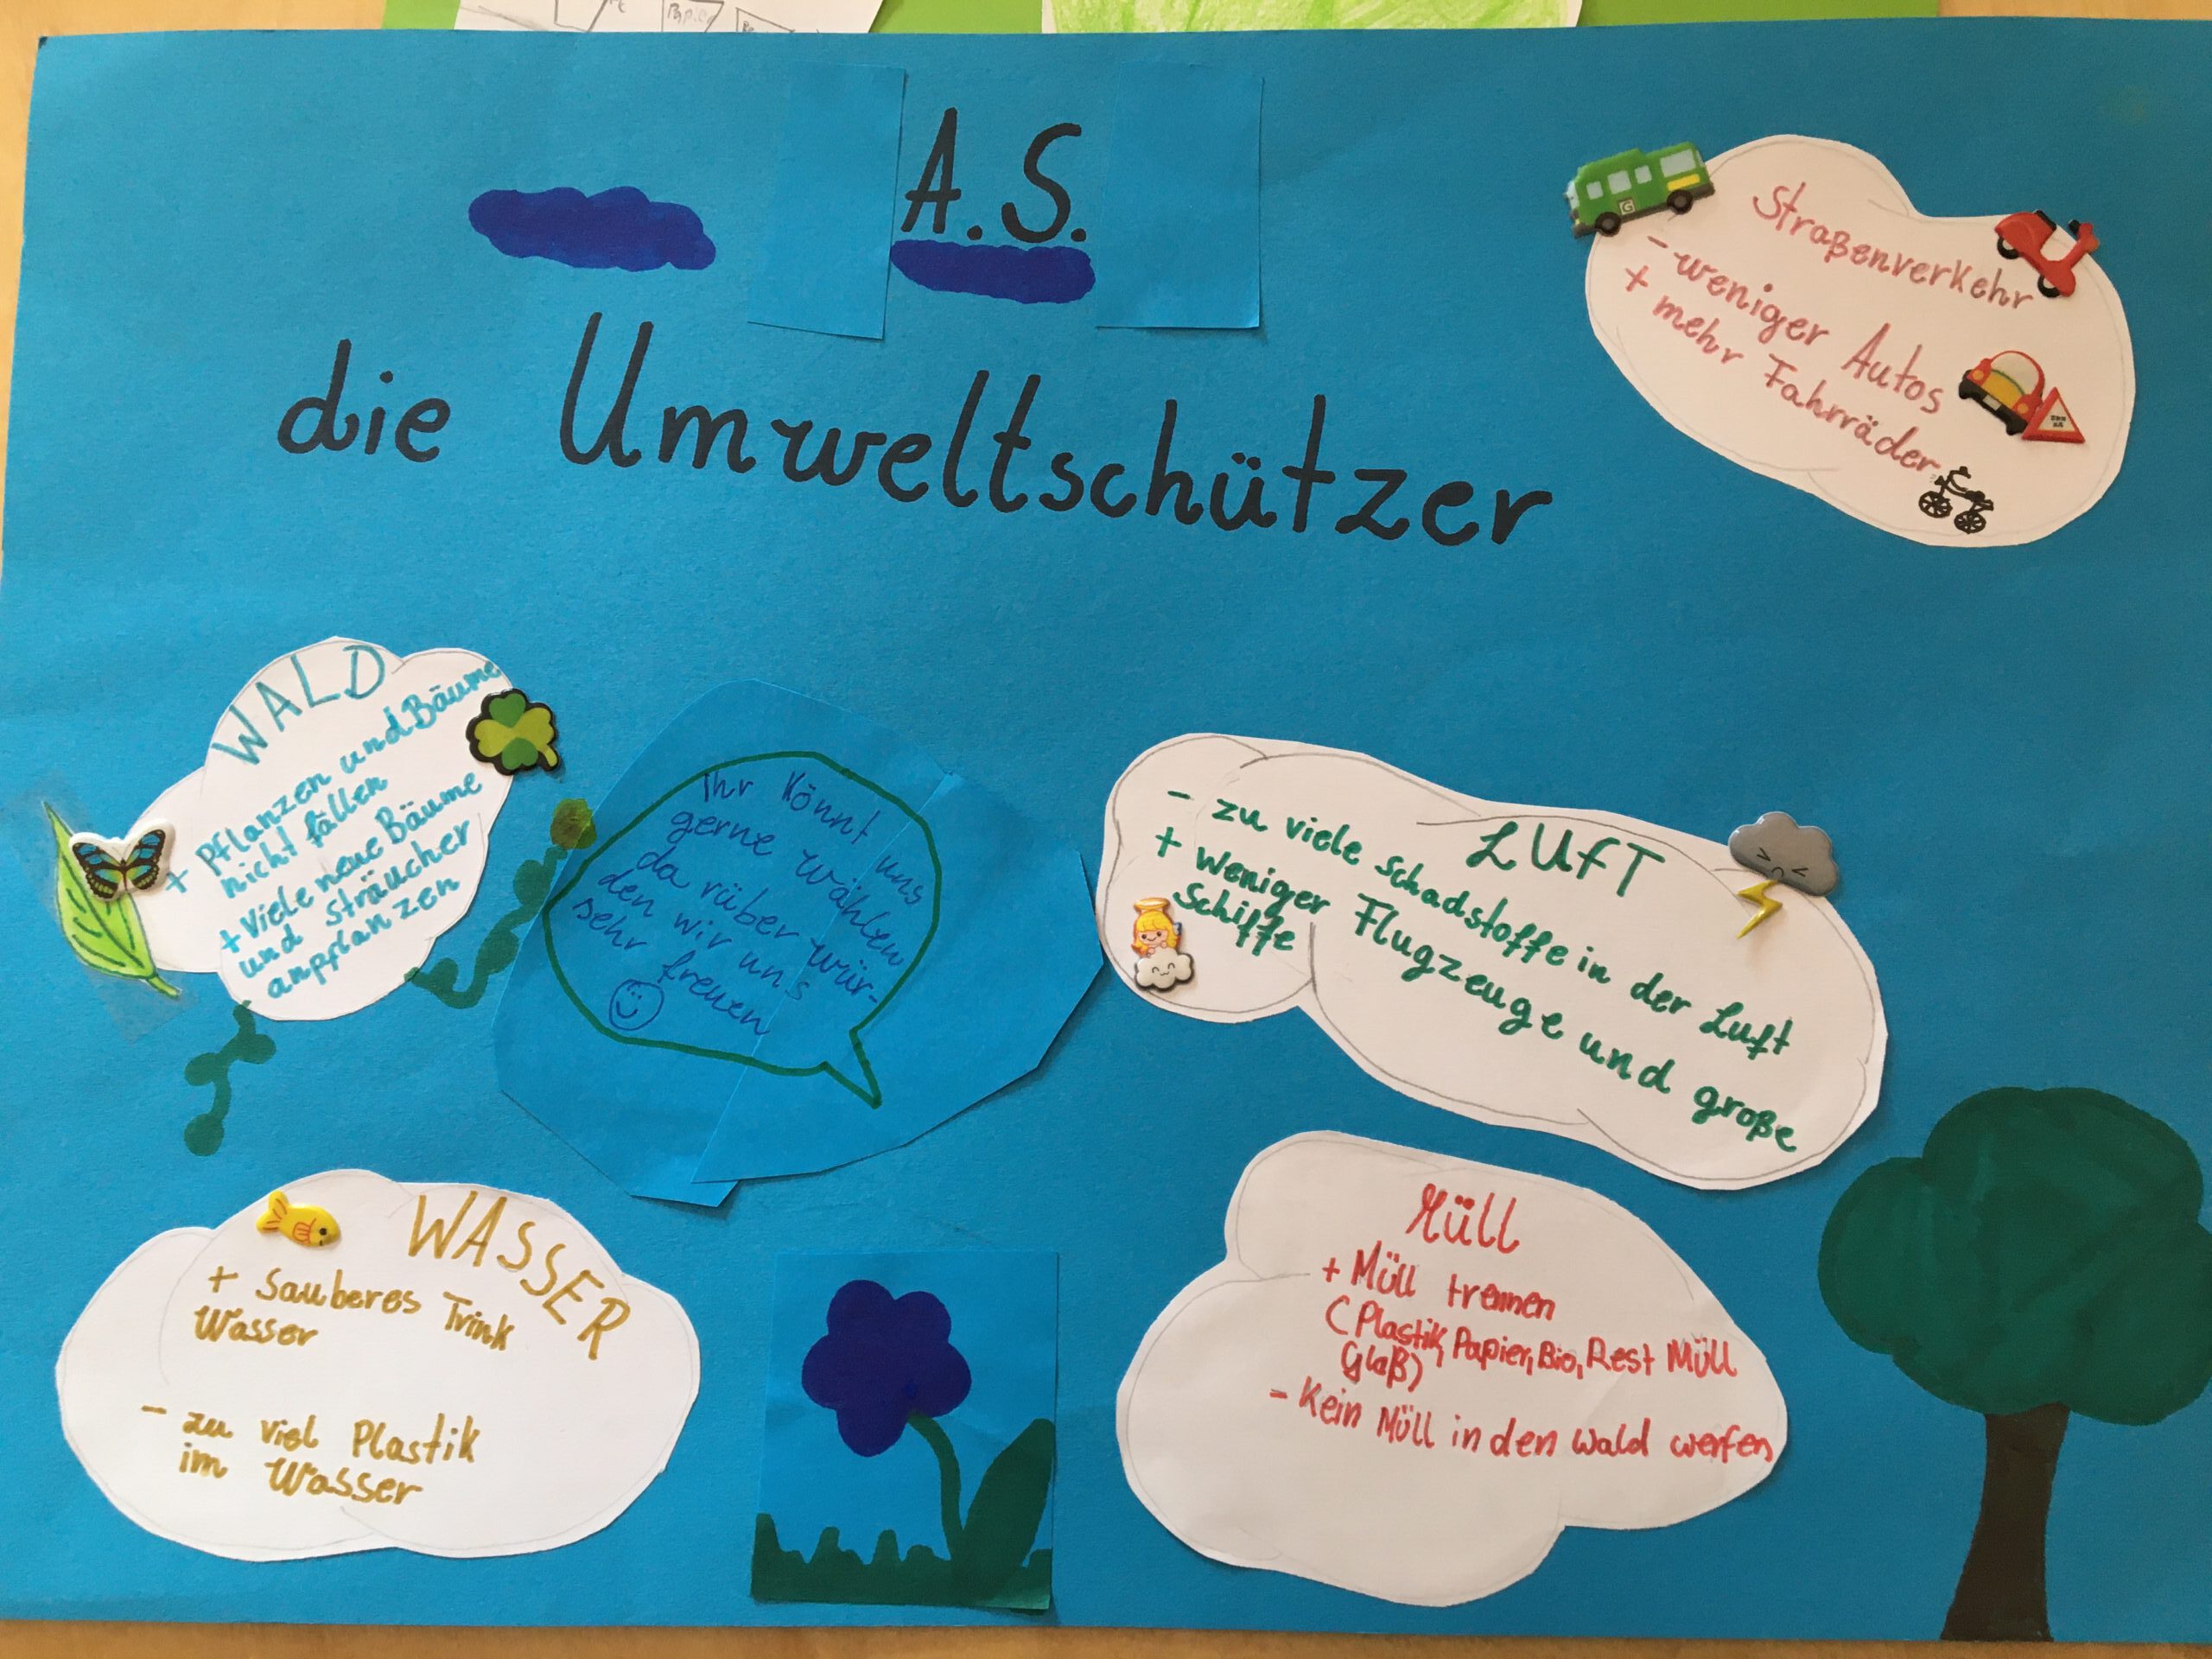 A.S.
die Umweltschützer
Straßenverkehr
- weniger Autos
+ mehr Fahrräder
WALD
+ Pflanzen und Bäume
nicht fällen
+ Viele neue Bäume
und sträucher
anpflanzen
Ihr könnt uns
gerne wählen
da rüber wür-
den wir uns
sehr freuen
LUfT
- zu viele schadstoffe in der Luft
+ weniger Flugzeuge und große
Schiffe
WASSER
+ Sauberes Trink
Wasser
- zu viel Plastik
im Wasser
Müll
+ Müll trennen
(Plastik, Papier, Bio, Rest Müll
Glaß)
- Kein Müll in den Wald werfen
G